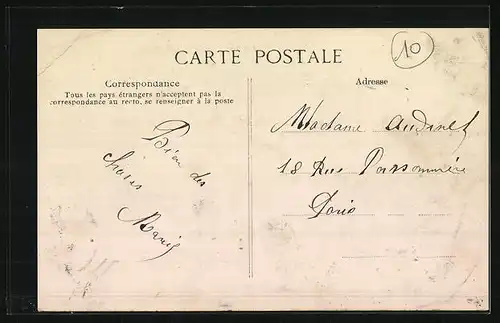 10
CARTE POSTALE
Correspondance
Tous les pays étrangers n'acceptent pas la
correspondance au recto, se renseigner à la poste
Adresse
Bien des
choses
Madame Audinet
18 Rue Poissonnière
Paris